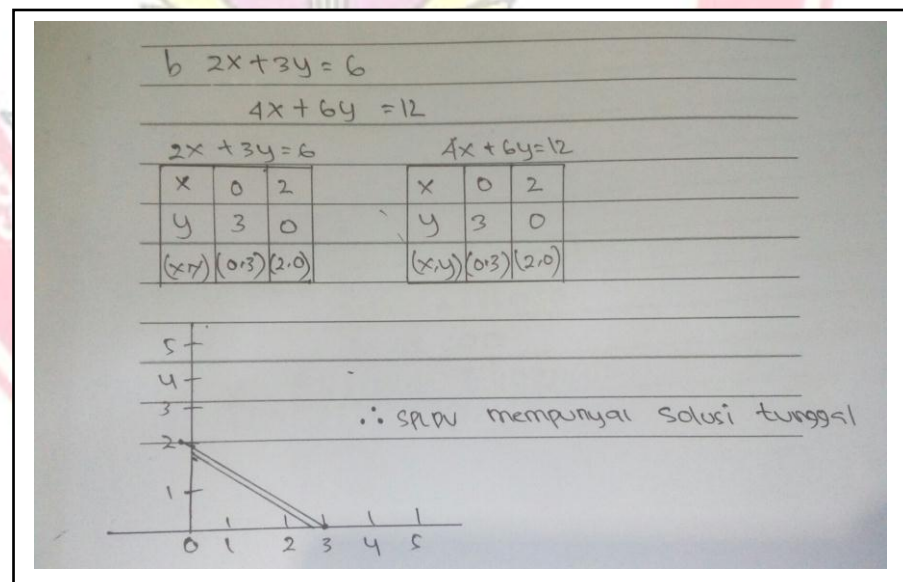 b 2x + 3y = 6
4x + 6y = 12
2x + 3y = 6
x 0 2
y 3 0
(x,y) (0,3) (2,0)
4x + 6y = 12
x 0 2
y 3 0
(x,y) (0,3) (2,0)
5
4
3
2
1
0 1 2 3 4 5
∴ SPLDV mempunyai solusi tunggal